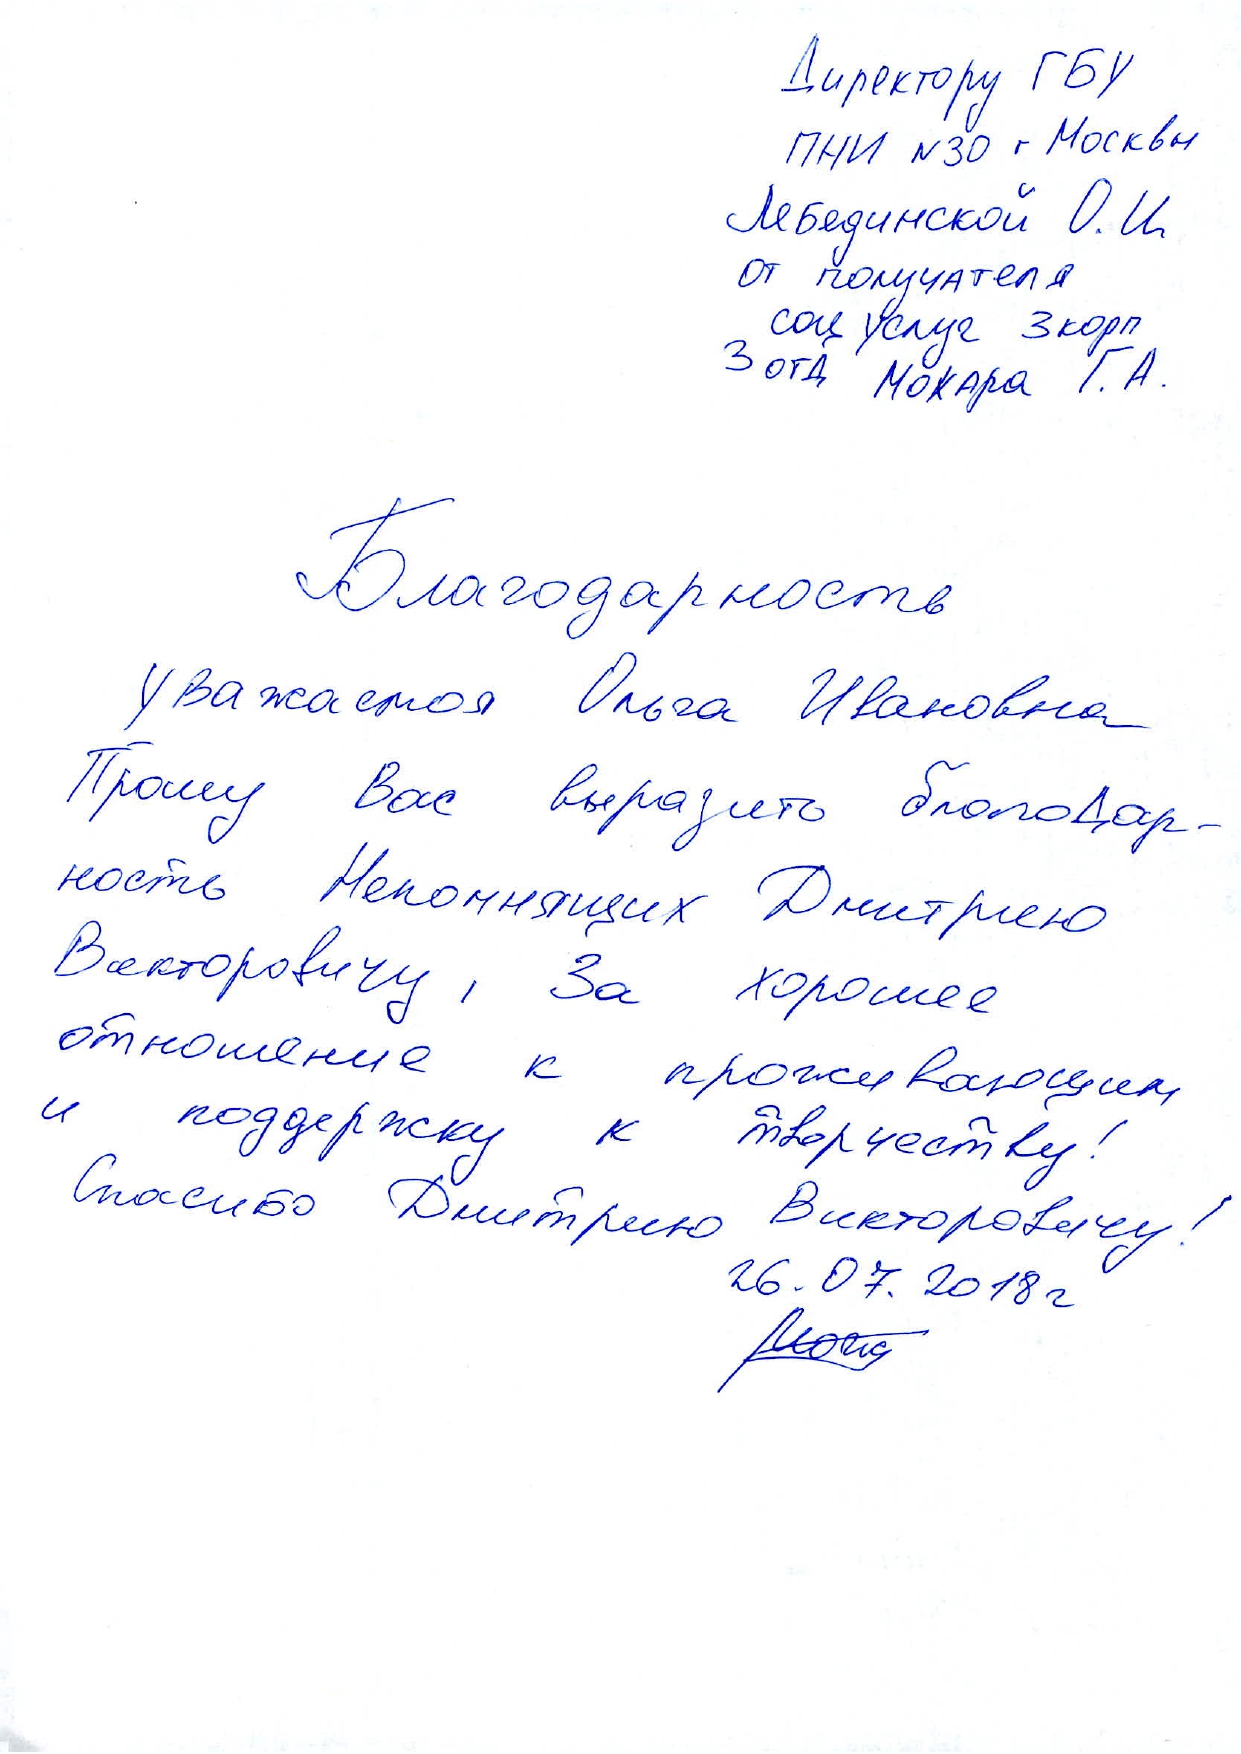 Директору ГБУ
ПНИ N30 г Москвы
Лебединской О.И.
от получателя
соц услуг 3 корп
3 отд Мокара Г.А.
Благодарность
Уважаемая Ольга Ивановна
Прошу Вас выразить благодар-
ность Непомнящих Дмитрию
Викторовичу, За хорошее
отношение к проживающим
и поддержку к творчеству!
Спасибо Дмитрию Викторовичу!
26.07.2018г